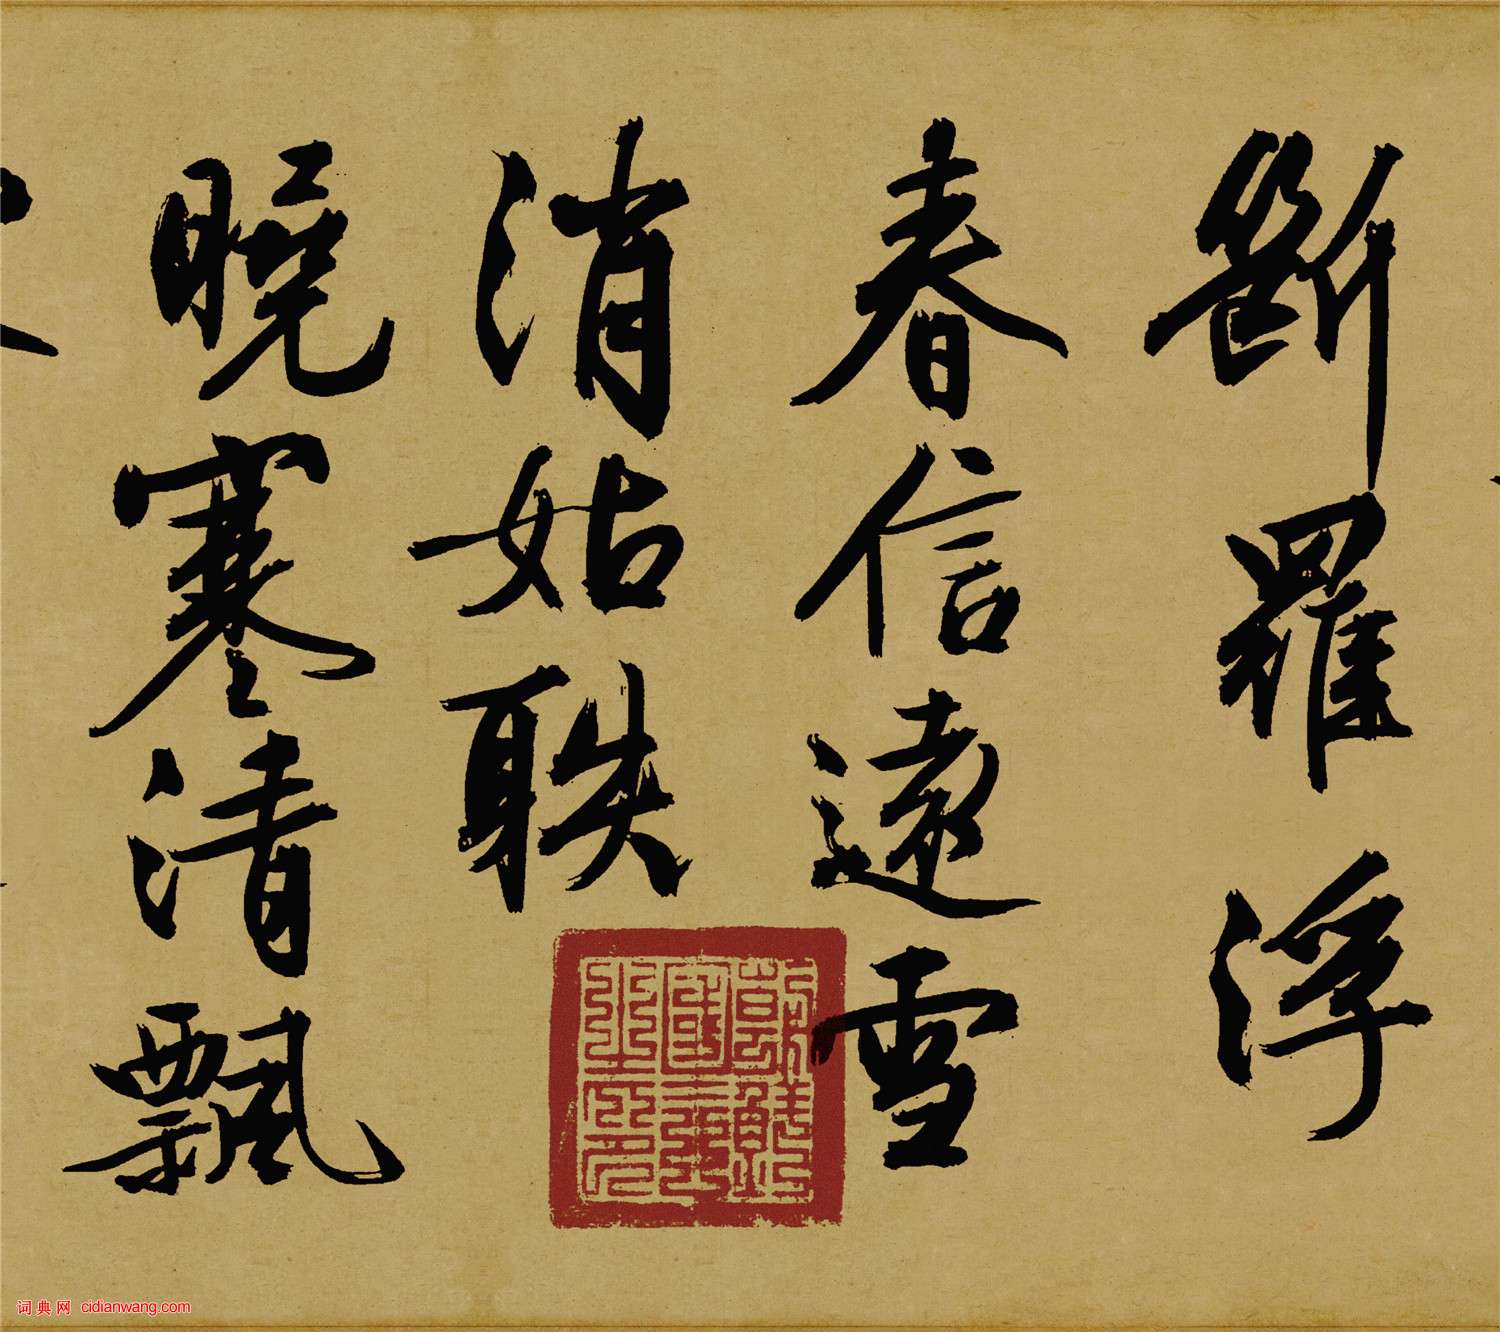 斷羅浮
春信遠雪
消姑䠶
曉寒清飄
词典网 cidianwang.com